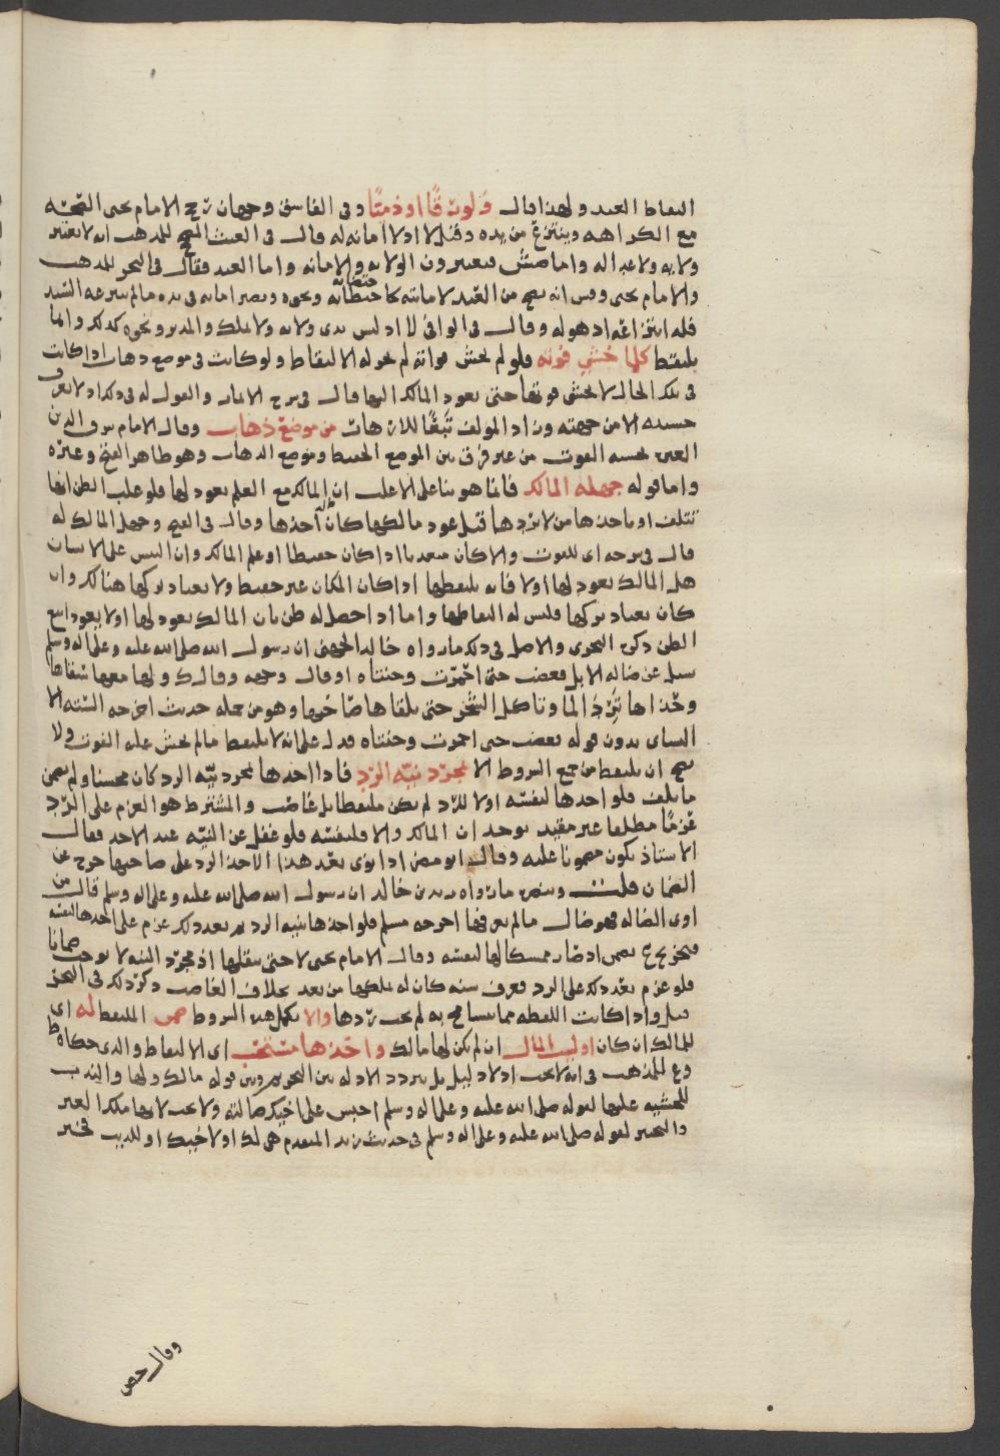 التقاط العبد ولهذا قال ولو رقًا او ذميًا وفى الفاسق وجهان رجح الامام يحيى الصحة
مع الكراهه وينتزع من يده وقيل لا اذ لا امانة له قال فى الغيث الصحيح للمذهب انه لا يعتبر
ولايه ولا عداله واما صش فيعتبرون الولايه والامانه واما العبد فقال فى البحر للمذهب
والامام يحيى وقش انه يصح من العبد لامانته كاحتطابه ونحوه ويصير امانه فى يده مالم ينزعه السيد
فله انتزاعه اذ هو له وقال فى الوافى لا اذ ليس بذى ولايه ولا ملك والمدبر ونحوه كذلك وانما
يلتقط كلما خشي فوته فلو لم يخش فواته لم يجز له الالتقاط ولو كانت فى موضع ذهاب اذا كانت
فى تلك الحال لا يخشى فوتها حتى يعود المالك اليها قال فى شرح الاثمار والقول له فى ذلك اذ لا يعرف
خشيته الا من جهته وزاد المولف تبعًا للازهار من موضع ذهاب وقال الامام شرف الدين
العبره بخشية الفوت من غير فرق بين الموضع الحفيظ وموضع الذهاب وهو ظاهر الفتح وغيره
واما قوله جهله المالك فانما هو بنا على الاغلب ان المالك مع العلم يعود لها فلو غلب الظن انها
تتلف او ياخذها من لا يردها قبل عود مالكها كان له اخذها وقال فى الفتح وجهل المالك له
قال فى شرحه اى للفوت والا كان متعديا اذا كان حفيظا او علم المالك وان التبس على الانسان
هل المالك يعود لها او لا فانه يلتقطها اذا كان المكان غير حفيظ ولا يعتاد تركها هنالك وان
كان يعتاد تركها فليس له التقاطها واما اذا حصل له ظن بان المالك يعود لها او لا يعود اتبع
الظن ذكره النجرى والاصل فى ذلك ما رواه خالد الجهنى ان رسول الله صلى الله عليه وعلى اله وسلم
سيل عن ضالة الابل فغضب حتى احمرّت وجنتاه او قال وجهه وقال مالك ولها معها سقاها
وحذاها ترد الما وتاكل الشجر حتى يلقاها صاحبها وهو من جمله حديث اخرجه السته الا
النساى بدون قوله فغضب حتى احمرت وجنتاه فدل على انه لا يلتقط مالم يخش عليه الفوت ولا
يصح ان يلتقط من جمع الشروط الا بمجرّد نيّة الردّ فاذا اخذها بمجرد نيّة الرد كان محسنا ولم يضمن
ما تلف فلو اخذها لنفسه او لا للرد لم يكن ملتقطا بل غاصب والمشترط هو العزم على الردّ
عزمًا مطلقا غير مقيد بوجدان المالك والا فلنفسه فلو غفل عن النيّه عند الاخذ فقال
الاستاذ يكون مضمونا عليه وقال ابو مضر اذا نوى بعد هذا الاخذ الرد على صاحبها خرج عن
الضمان قلت وينصره مارواه زيد بن خالد ان رسول الله صلى الله عليه وعلى اله وسلم قال من
اوى الضاله فهو ضال مالم يعرفها اخرجه مسلم فلو اخذها بنيه الرد ثم بعد ذلك عزم على اخذها لنفسه
فتخريج ع يضمن اذ صار ممسكا لها لنفسه وقال الامام يحيى لا حتى ينقلها اذ مجرّد النيه لا يوجب ضمانا
فلو عزم بعد ذلك على الرد فعرف سنه كان له تملكها من بعد بخلاف الغاصب ذكر ذلك فى البحر
قيل واذا كانت اللقطه مما يتسامح به لم يجب ردها والا تكمل هذه الشروط ضمن الملتقط له اى
للمالك ان كان او لبيت المال ان لم يكن لها مالك واخذها مستحب اى الالتقاط والذى حكاه ط
وع للمذهب فى انه لا يجب اذ لا دليل بل تتردد الادله بين التحريم وبين قوله مالك ولها والندب
للخشيه عليها لقوله صلى الله عليه وعلى اله وسلم احبس على اخيك ضالته ولا يجب لانها ملك الغير
والتخيير لقوله صلى الله عليه وعلى اله وسلم فى حديث زيد المتقدم هى لك او لاخيك او للذيب فخير
وقال حص